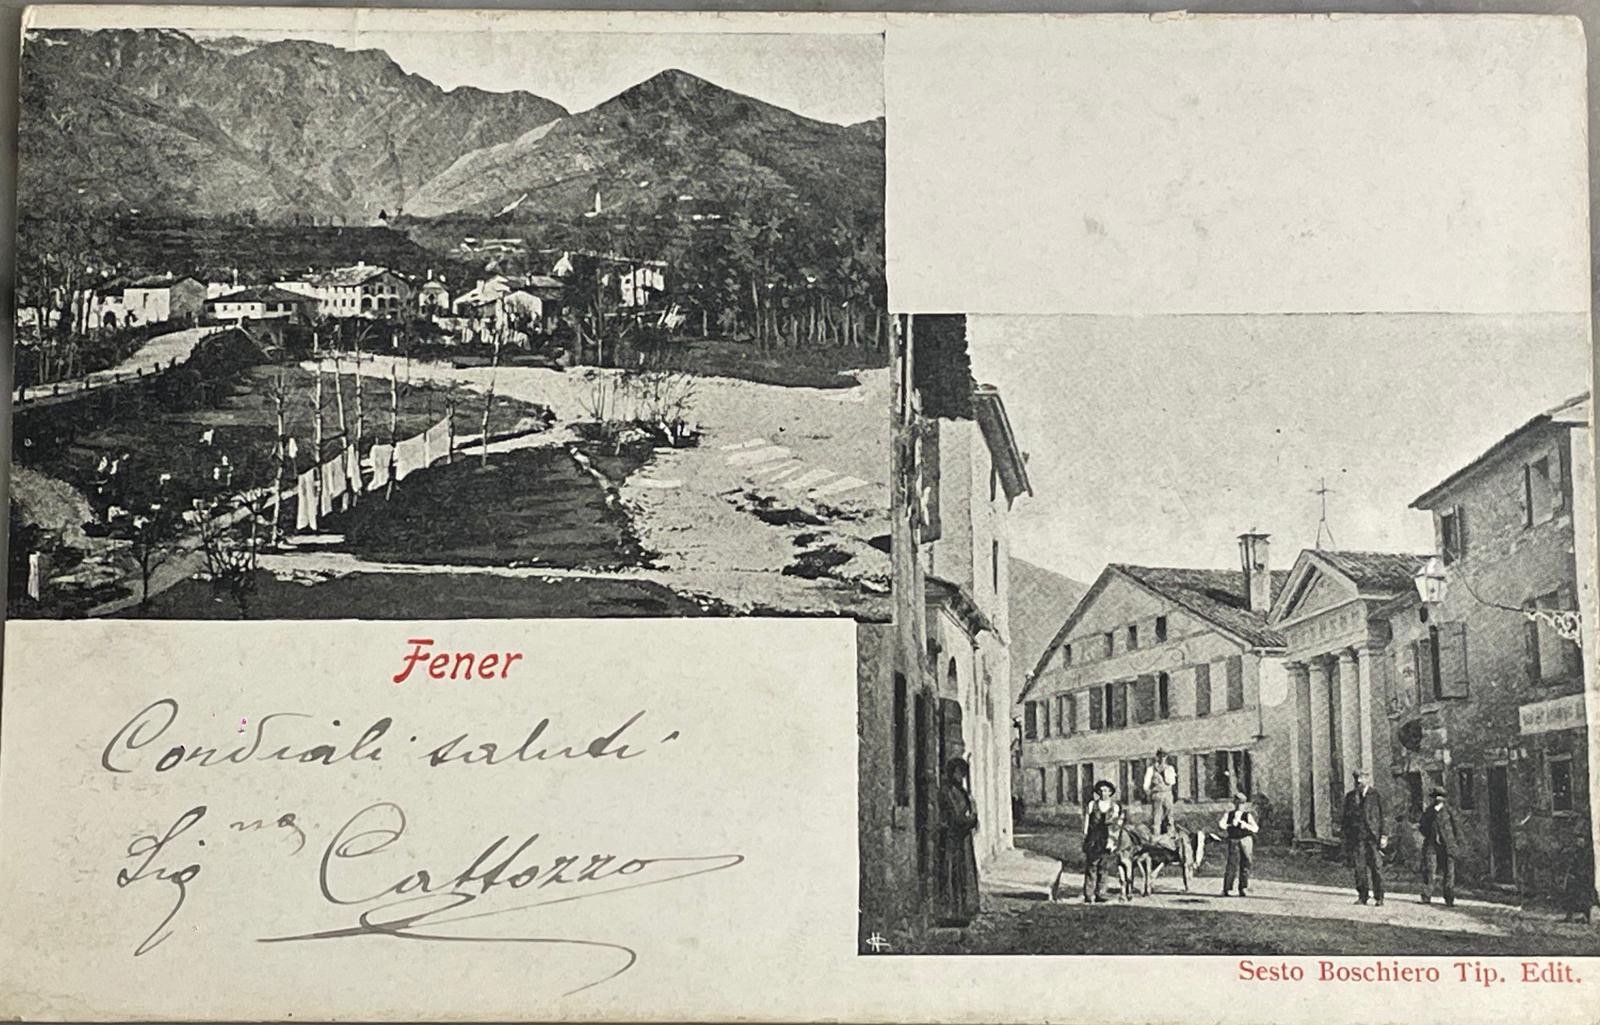 Fener
Cordiali saluti
Sig.na Cattozzo
Sesto Boschiero Tip. Edit.